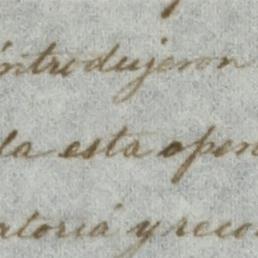 introdujeron
la esta open
atoria y reco